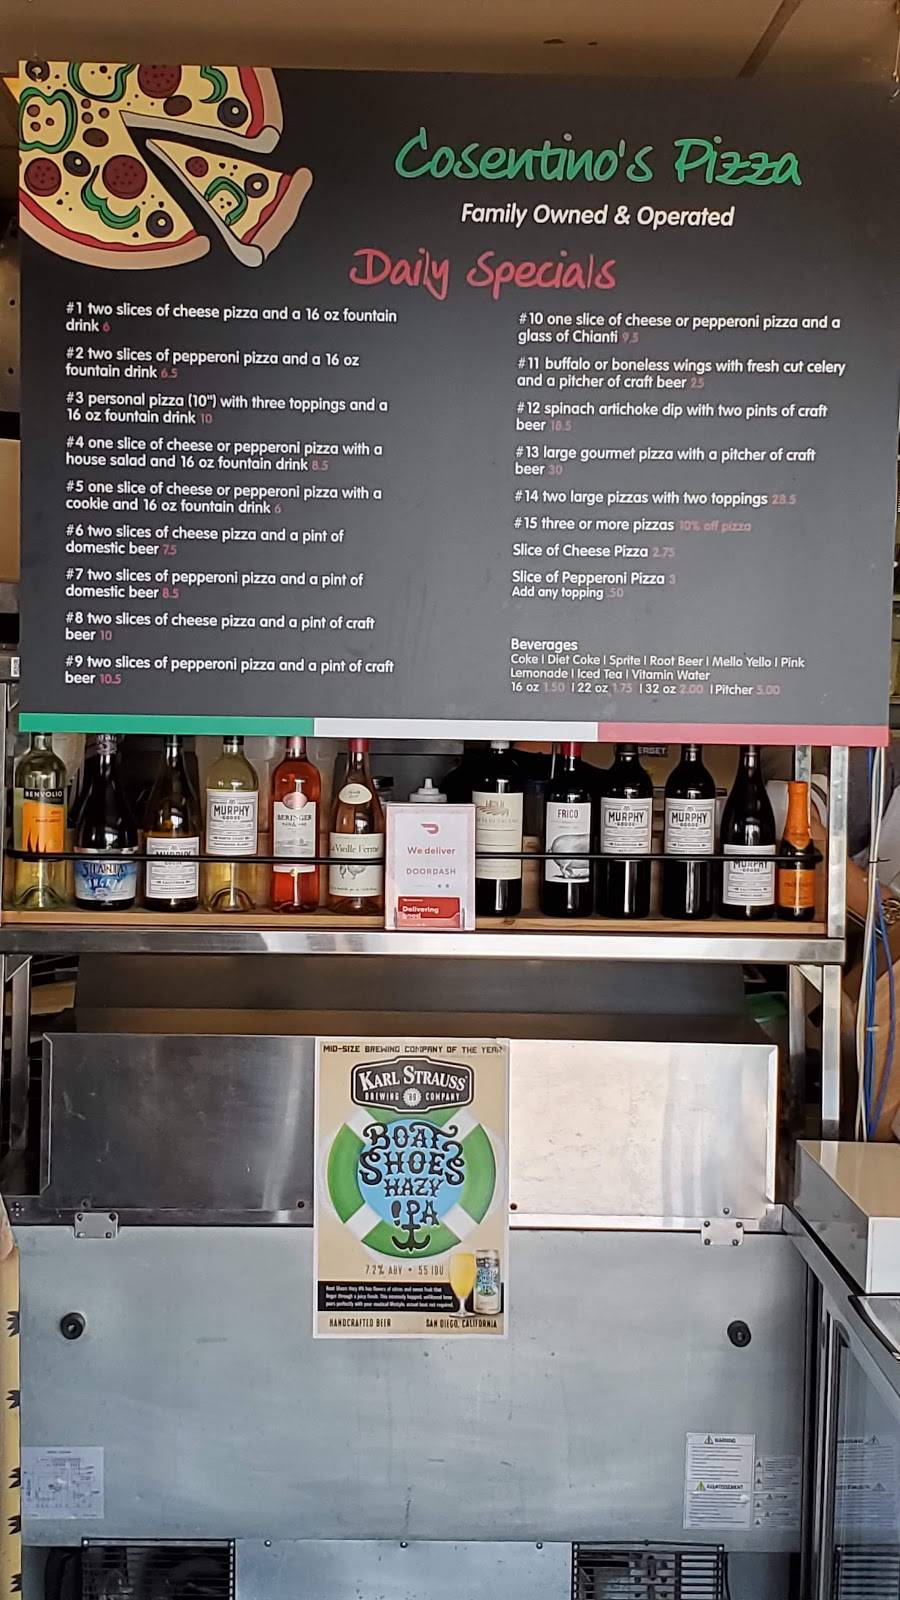 Cosentino's Pizza
Family Owned & Operated
Daily Specials
#1 two slices of cheese pizza and a 16 oz fountain
drink 6
#2 two slices of pepperoni pizza and a 16 oz
fountain drink 6.5
#3 personal pizza (10") with three toppings and a
16 oz fountain drink 10
#4 one slice of cheese or pepperoni pizza with a
house salad and 16 oz fountain drink 8.5
#5 one slice of cheese or pepperoni pizza with a
cookie and 16 oz fountain drink 6
#6 two slices of cheese pizza and a pint of
domestic beer 7.5
#7 two slices of pepperoni pizza and a pint of
domestic beer 8.5
#8 two slices of cheese pizza and a pint of craft
beer 10
#9 two slices of pepperoni pizza and a pint of craft
beer 10.5
#10 one slice of cheese or pepperoni pizza and a
glass of Chianti 9.5
#11 buffalo or boneless wings with fresh cut celery
and a pitcher of craft beer 25
#12 spinach artichoke dip with two pints of craft
beer 18.5
#13 large gourmet pizza with a pitcher of craft
beer 30
#14 two large pizzas with two toppings 28.5
#15 three or more pizzas 10% off pizza
Slice of Cheese Pizza 2.75
Slice of Pepperoni Pizza 3
Add any topping .50
Beverages
Coke | Diet Coke | Sprite | Root Beer | Mello Yello | Pink
Lemonade | Iced Tea | Vitamin Water
16 oz 1.50 | 22 oz 1.75 | 32 oz 2.00 | Pitcher 5.00
BENVOLIO
MURPHY
GOODE
MURPHY
BERINGER
La Vieille Ferme
We deliver
DOORDASH
Delivering
good
FRICO
MURPHY
GOODE
MURPHY
GOODE
MURPHY
MID-SIZE BREWING COMPANY OF THE YEAR
KARL STRAUSS
BREWING 89 COMPANY
BOAT
SHOES
HAZY
IPA
7.2% ABV • 55 IBU
HANDCRAFTED BEER SAN DIEGO, CALIFORNIA
WARNING
AVERTISSEMENT